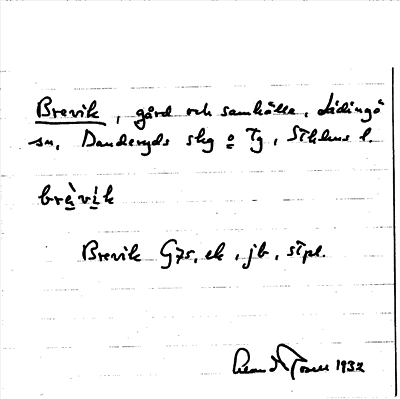 Brevik, gård och samhälle, Lidingö
sn, Danderyds skg o Tg, Sthlms l.
brèvik
Brevik G75, ek, jb, stpl.
1932